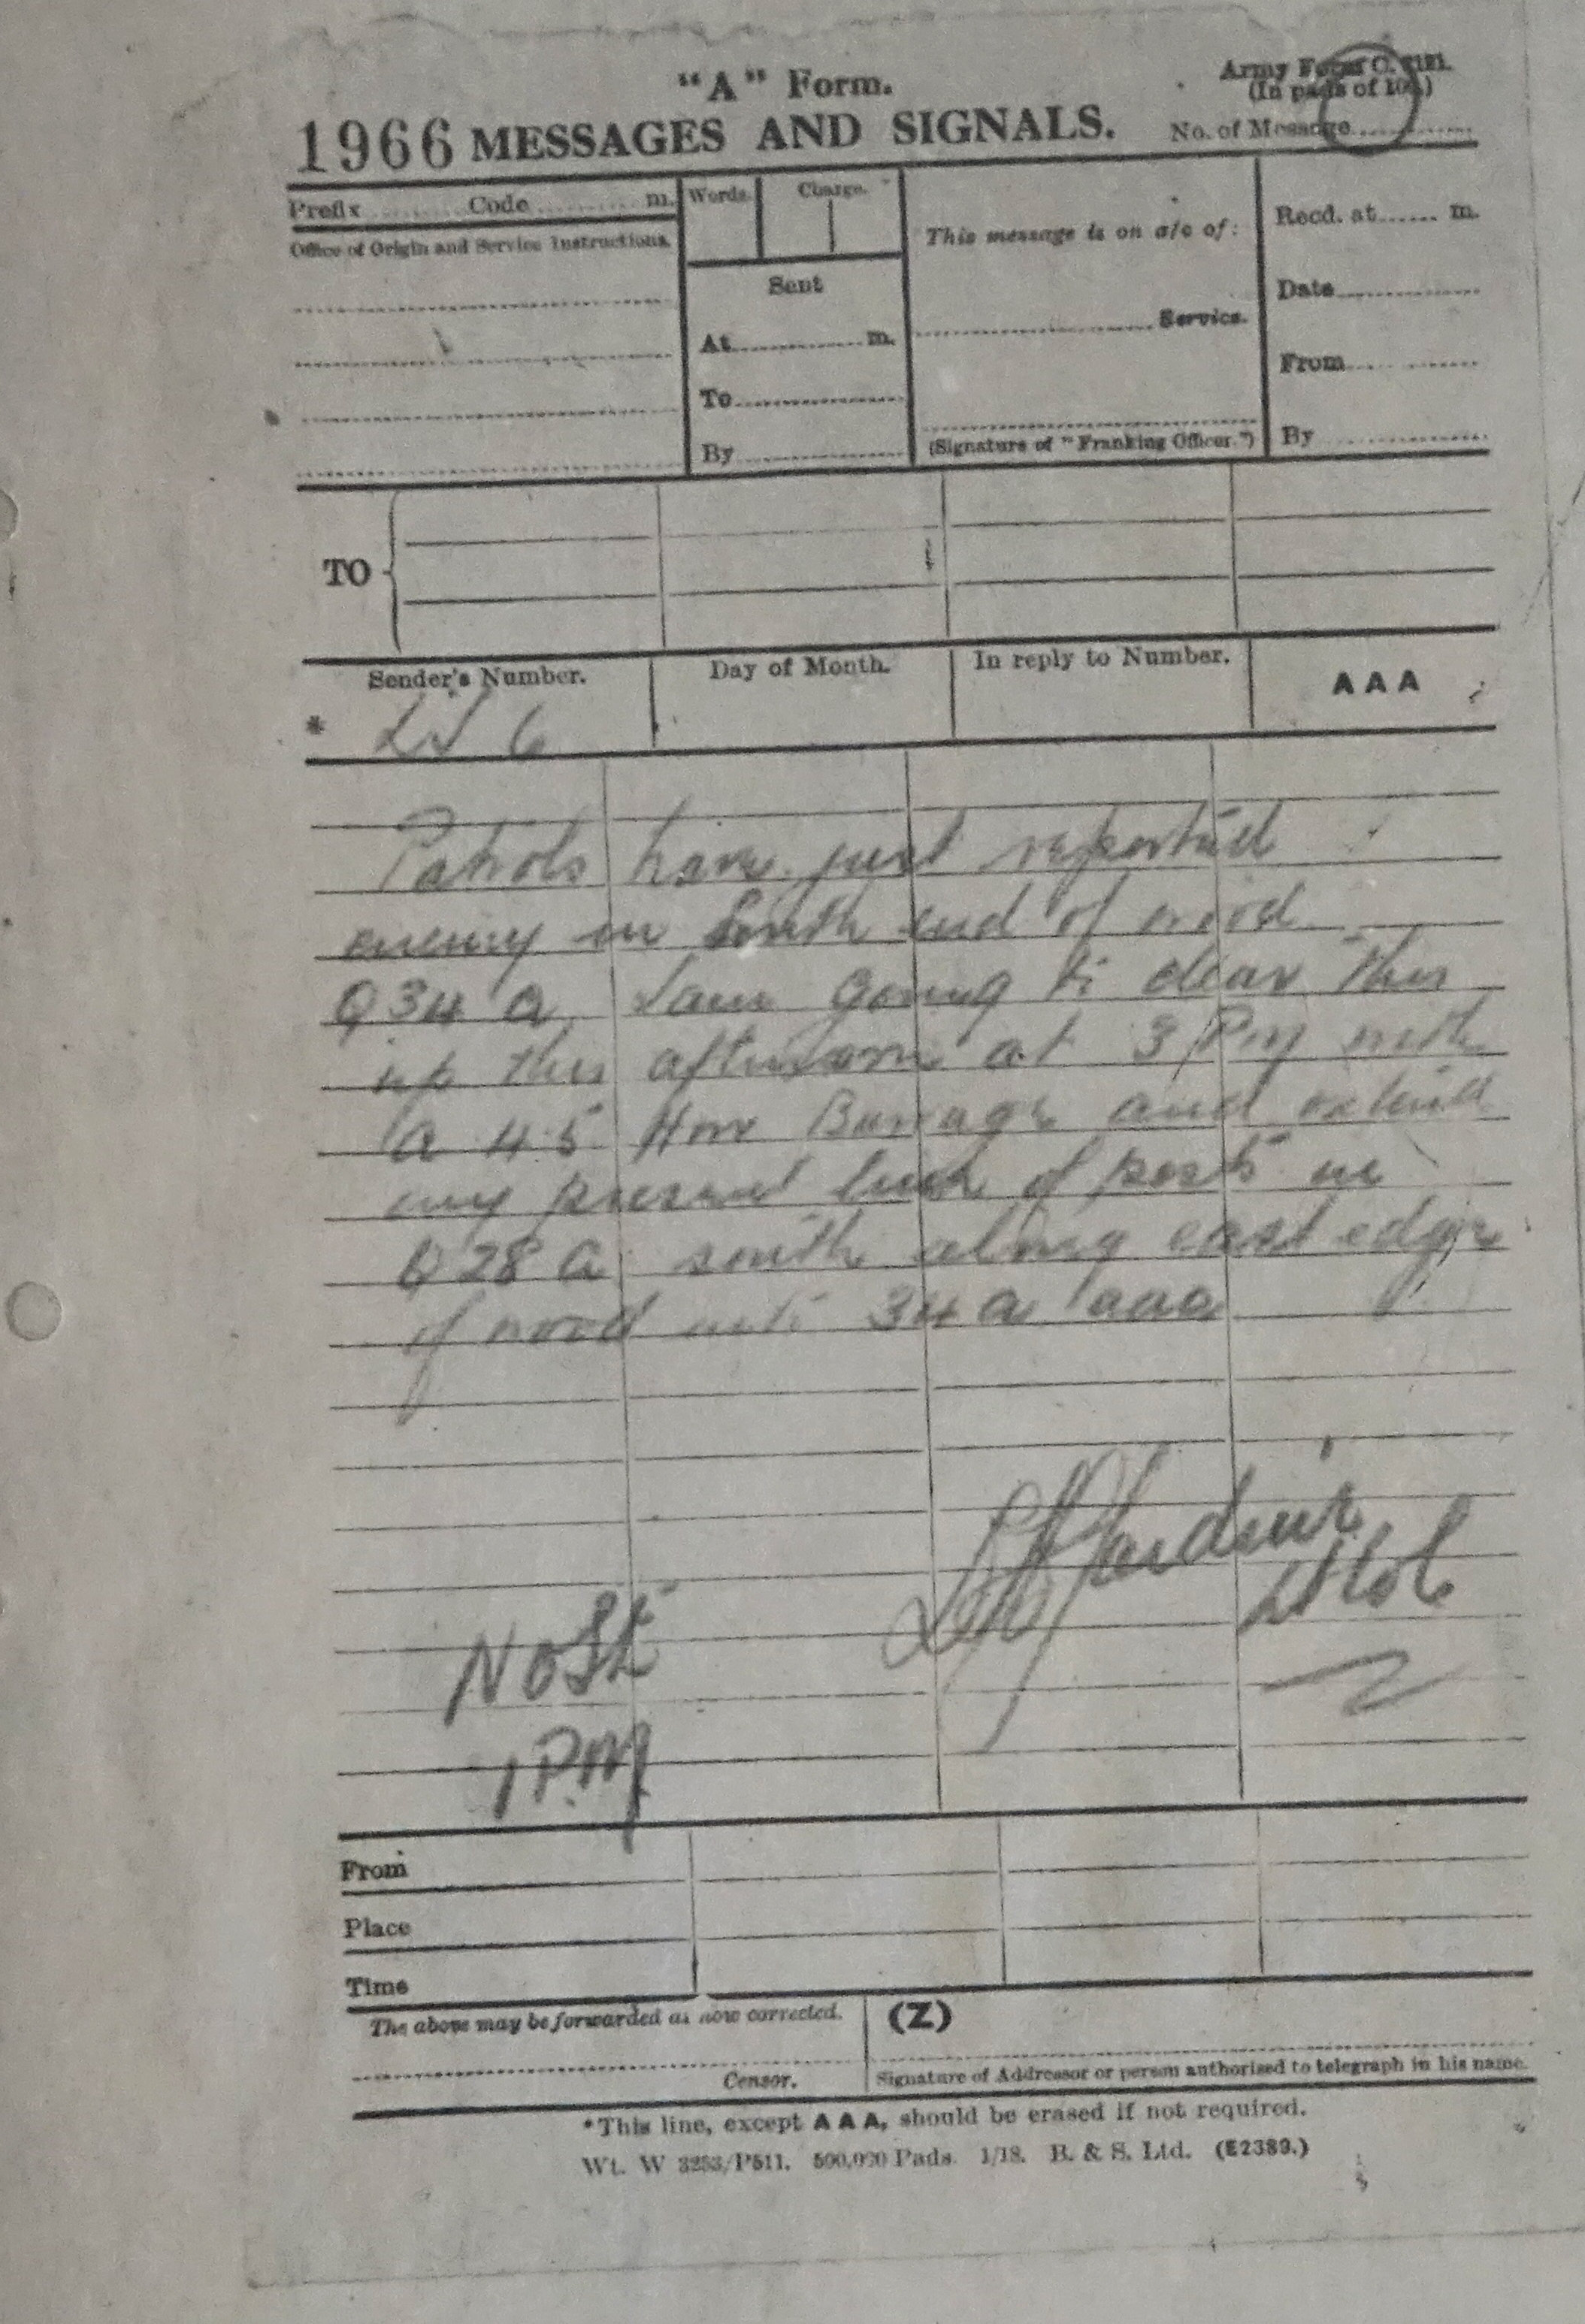 "A" Form.
Army Form C. 2121.
(In pads of 100.)
1966 MESSAGES AND SIGNALS.
No. of Message
Prefix Code m.
Words.
Charge.
This message is on a/c of:
Recd. at m.
Office of Origin and Service Instructions.
Sent
Date
At m.
Service.
From
To
By
(Signature of "Franking Officer.")
By
TO
Sender's Number.
Day of Month.
In reply to Number.
AAA
* 6
Patrols have just reported
enemy in South end of wood
Q 34 a I am going to clear this
up this afternoon at 3 PM with
a 4.5 How Barrage and extend
my present line of posts in
Q 28 a south along east edge
of wood into 34 a aaa
1 PM
From
Place
Time
The above may be forwarded as now corrected.
(Z)
Censor.
Signature of Addressor or person authorised to telegraph in his name.
*This line, except AAA, should be erased if not required.
Wt. W 3253/P511. 500,000 Pads. 1/18. B. & S. Ltd. (E2389.)